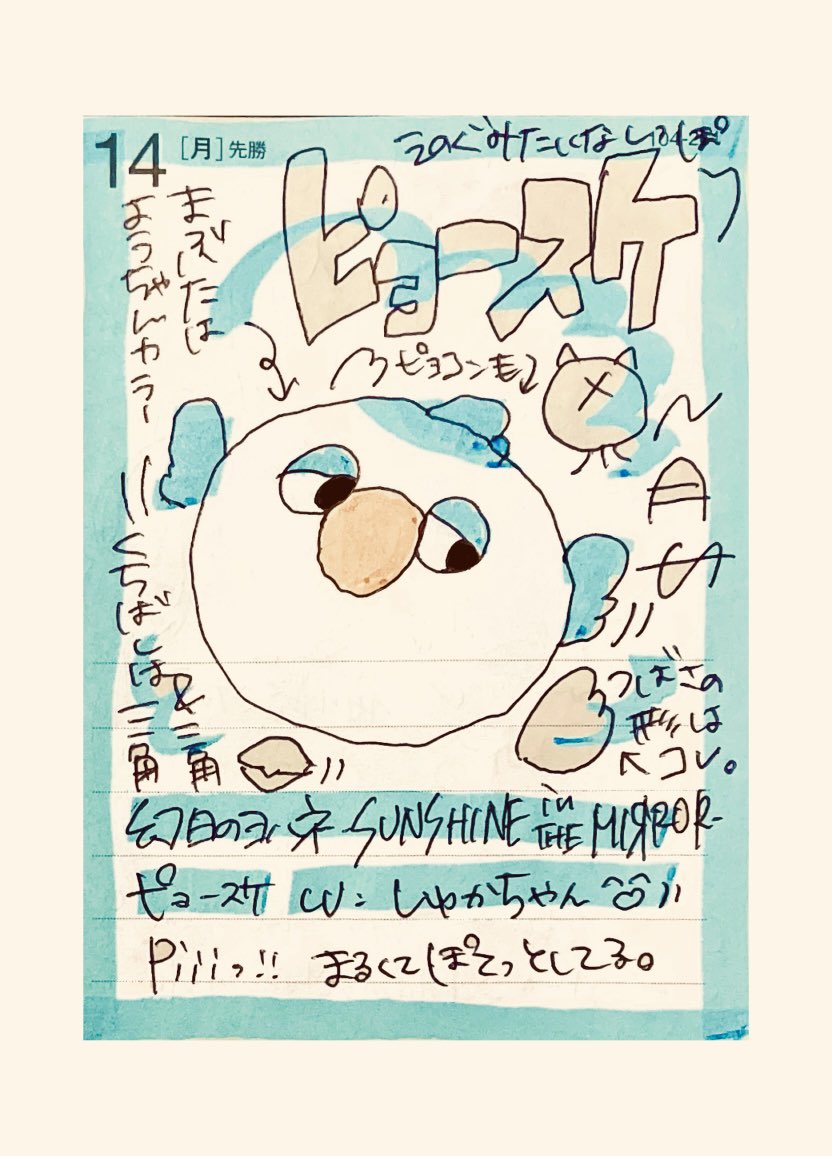 14 [月] 先勝
えのぐみたいな
ピョースケ
まぶたは
ようちゃんカラー
ピョコン毛
くちばしは三角
&三角
つばさの
形は
↖コレ。
幻日のヨハネ -SUNSHINE in THE MIRROR-
ピョースケ CV: しゅかちゃん
Piiiっ!! まるくてぽてっとしてる。